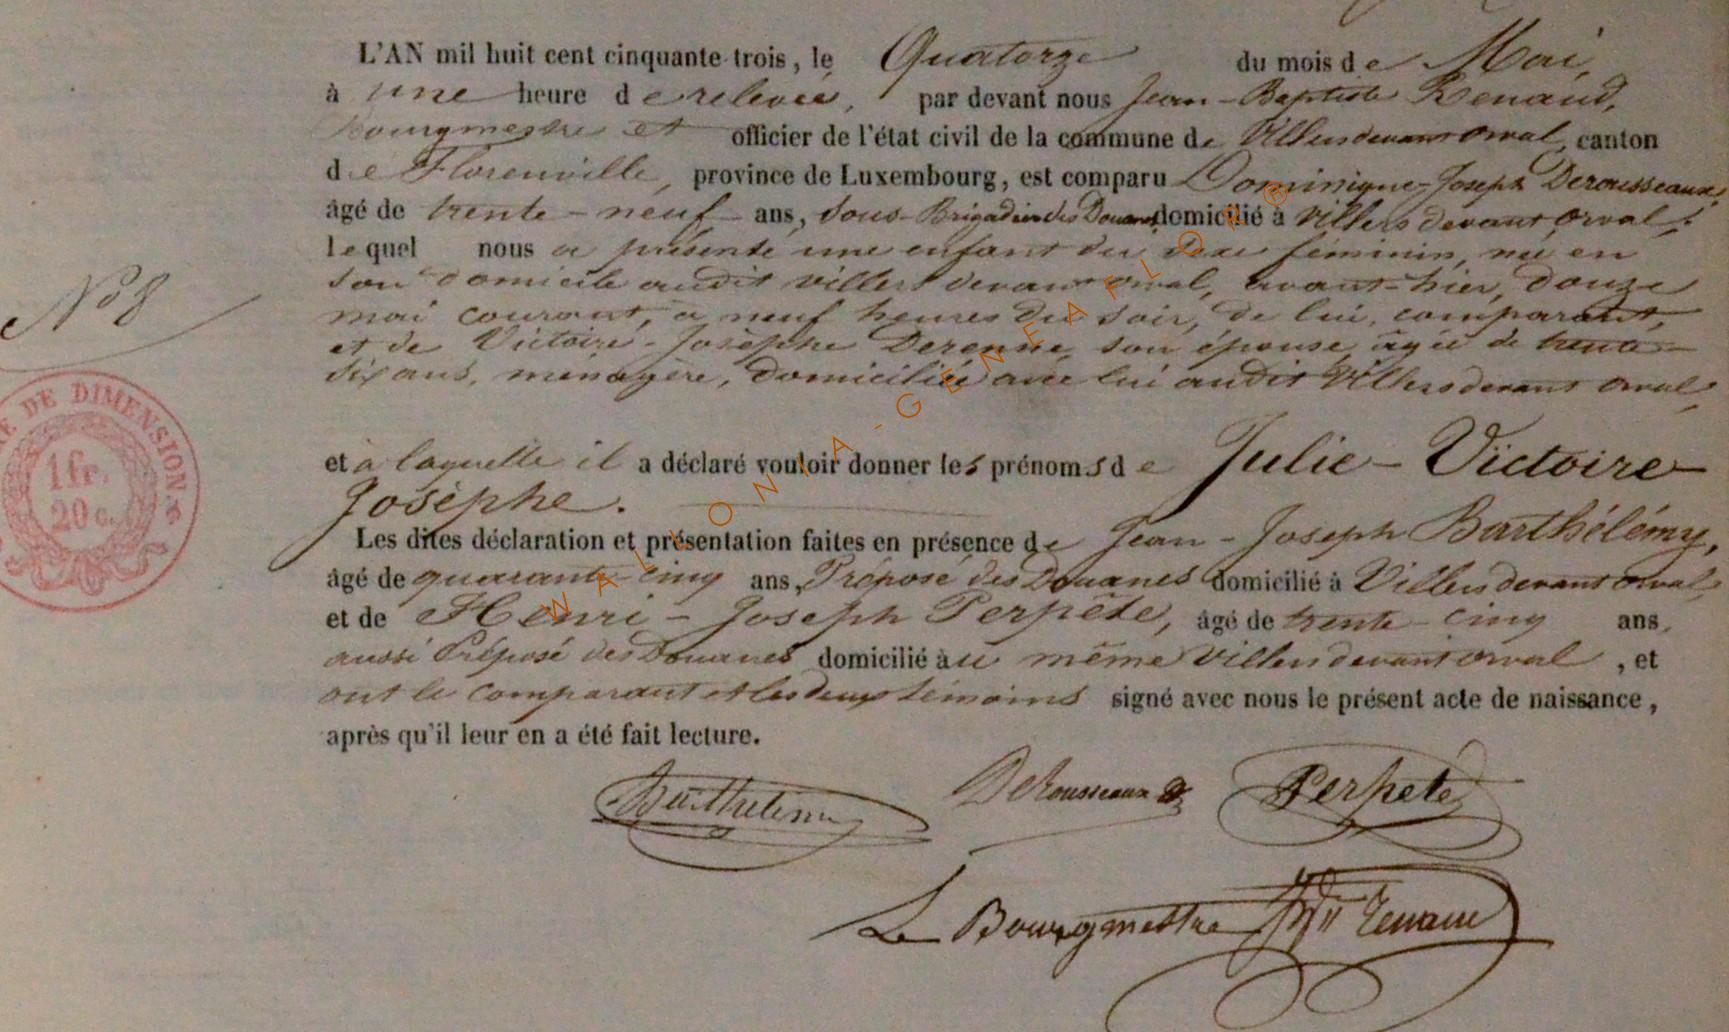 L'AN mil huit cent cinquante-trois, le Quatorze du mois de Mai,
à une heure de relevée, par devant nous Jean-Baptiste Renaud,
Bourgmestre et officier de l'état civil de la commune de Villers devant Orval, canton
de Florenville, province de Luxembourg, est comparu Dominique-Joseph Derousseaux,
âgé de trente-neuf ans, Sous-Brigadier des Douanes, domicilié à Villers devant Orval,
lequel nous a présenté une enfant du sexe féminin, né en
son domicile audit Villers devant Orval, avant-hier, douze
mai courant, à neuf heures du soir, de lui, comparant,
et de Victoire-Josèphe Derenne, son épouse, âgée de trente-
six ans, ménagère, domiciliée avec lui audit Villers devant Orval,
et à laquelle il a déclaré vouloir donner les prénoms de Julie-Victoire
Josèphe.
Les dites déclaration et présentation faites en présence de Jean-Joseph Barthélémy,
âgé de quarante-cinq ans, Préposé des Douanes domicilié à Villers devant Orval,
et de Henri-Joseph Perpète, âgé de trente-cinq ans,
aussi Préposé des Douanes domicilié au même Villers devant Orval, et
ont le comparant et les deux témoins signé avec nous le présent acte de naissance,
après qu'il leur en a été fait lecture.
N° 8
DE DIMENSION
1 fr.
20 c.
WALLONIA-GENEAFLOR®
Barthélémy DeRousseaux Perpete
Le Bourgmestre Renaud